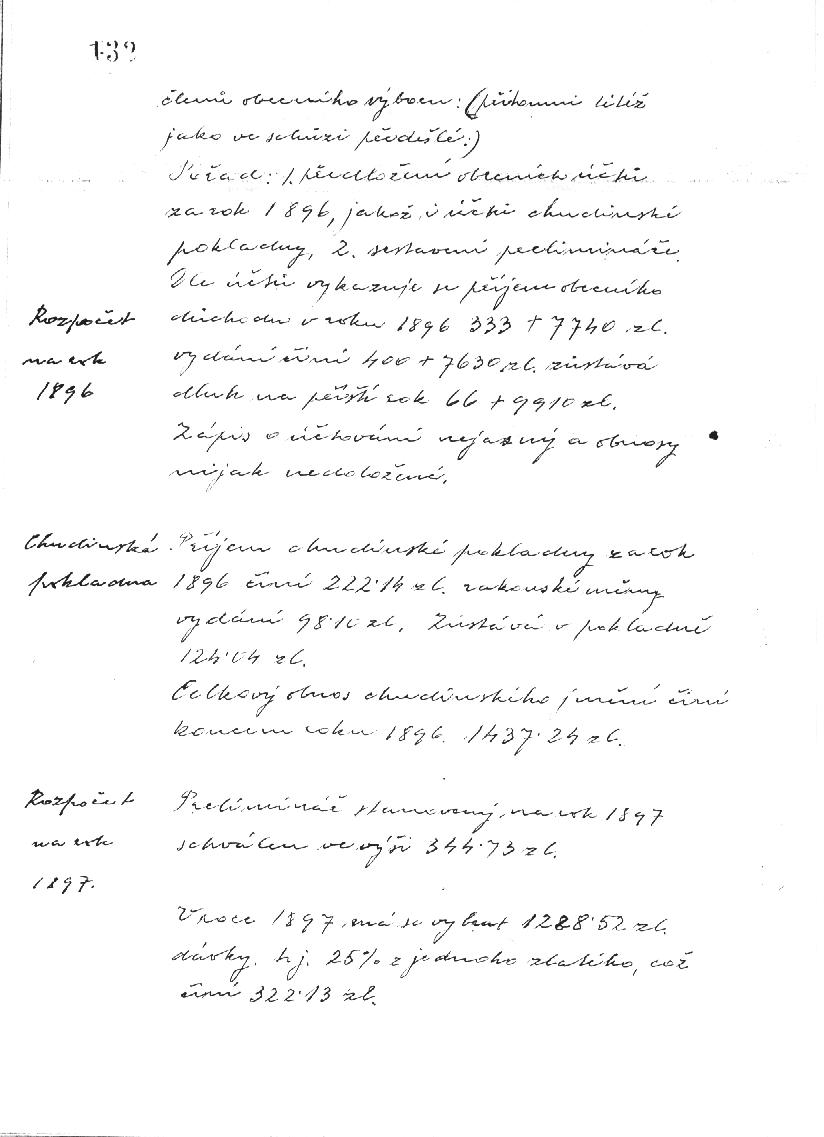 132
členů obecního výboru: (přítomni titíž
jako ve schůzi předešlé:)
Pořad: 1. předložení obecních účtů
za rok 1896, jakož i účtů chudinské
pokladny, 2. sestavení prelimináře.
Dle účtů vykazuje se příjem obecního
Rozpočet
na rok
1896
důchodu v roku 1896 333 + 7740 zl.
vydání činí 400 + 7630 zl. zůstává
dluh na příští rok 66 + 9910 zl.
Zápis o účtování nejasný a obnosy
nijak nedoložené.
Chudinská
pokladna
Příjem chudinské pokladny za rok
1896 činí 222·14 zl. rakouské měny
vydání 98·10 zl. Zůstává v pokladně
124·04 zl.
Celkový obnos chudinského jmění činí
koncem roku 1896. 1437·24 zl.
Rozpočet
na rok
1897.
Preliminář stanovený na rok 1897
schválen ve výši 344·73 zl.
V roce 1897 má se vybrat 1288·52 zl.
dávky. tj. 25% z jednoho zlatého, což
činí 322·13 zl.